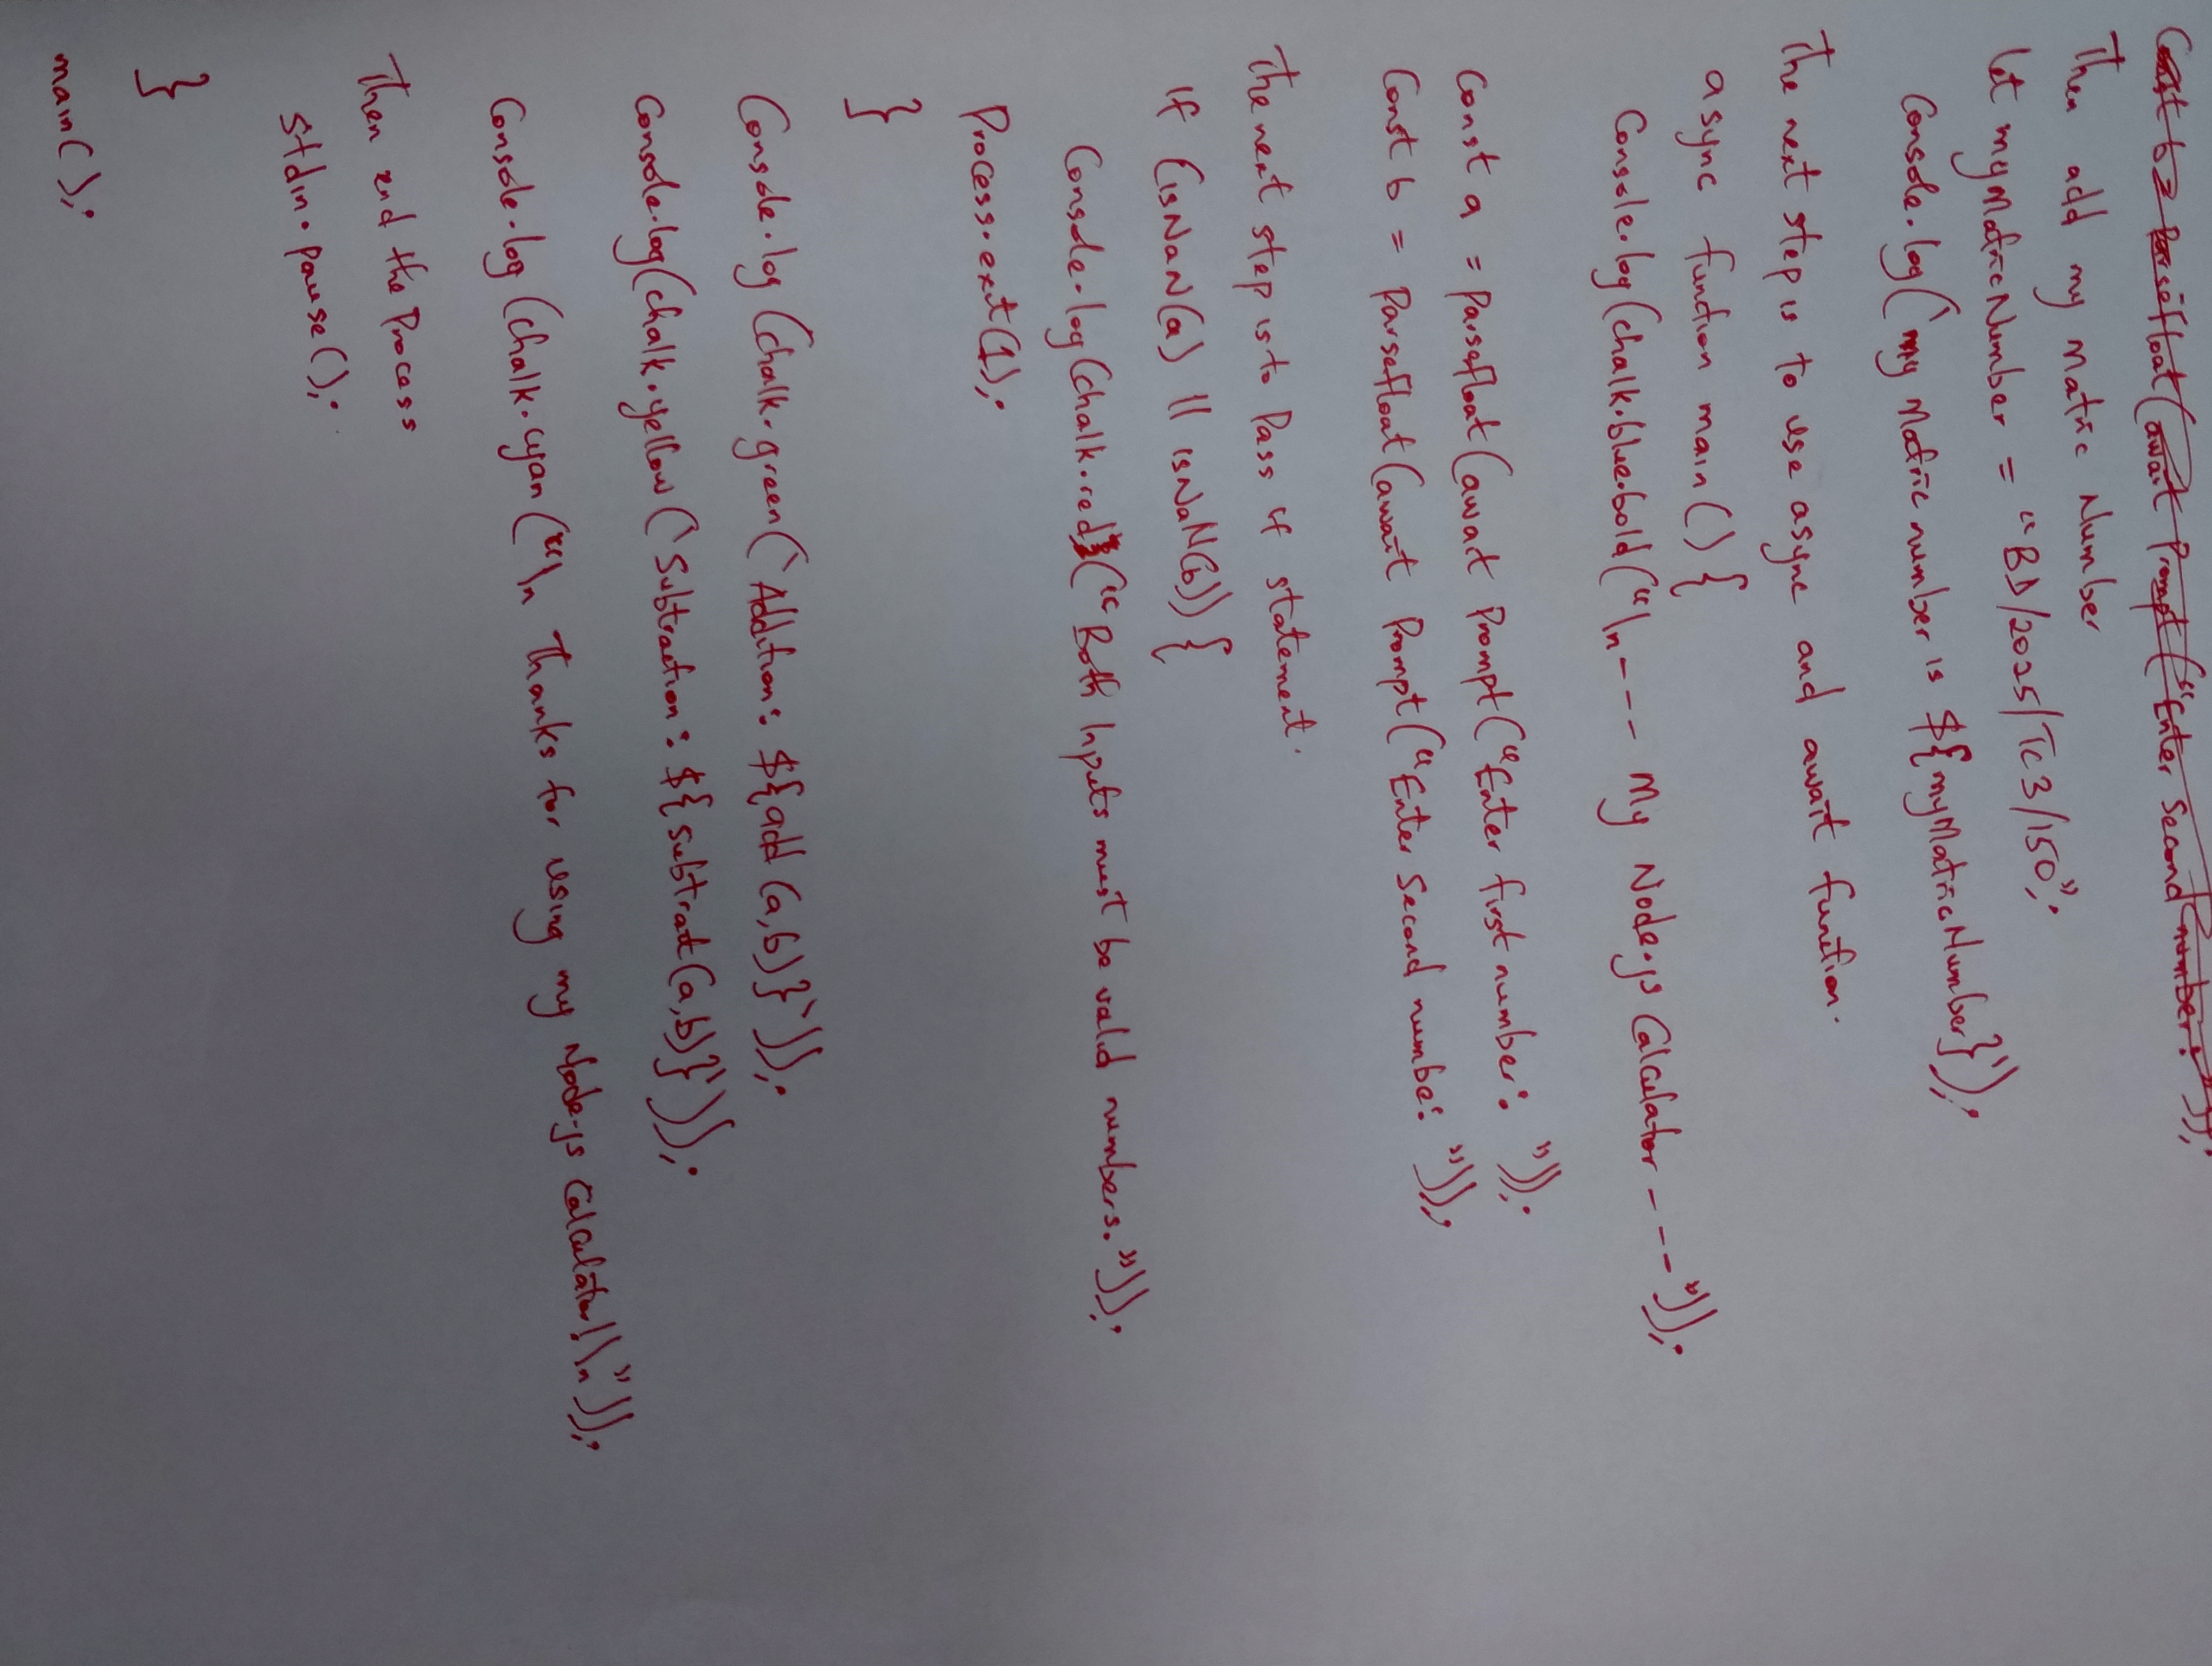 Const b = Parsefloat(await Prompt("Enter Second number: "));
Then add my matric Number
let myMatricNumber = "BD/2025/TC3/150";
Console.log(`my Matric number is ${myMatricNumber}`);
The next step is to use async and await function.
async function main() {
Console.log(chalk.blue.bold("\n--- My Node.js Calculator ---"));
Const a = Parsefloat(await Prompt("Enter first number: "));
Const b = Parsefloat(await Prompt("Enter Second number: "));
The next step is to Pass if statement.
If (isNaN(a) || isNaN(b)) {
Console.log(chalk.red("Both Inputs must be valid numbers."));
Process.exit(1);
}
Console.log(chalk.green(`Addition: ${add(a,b)}`));
Console.log(chalk.yellow(`Subtraction: ${subtract(a,b)}`));
Console.log(chalk.cyan("\n Thanks for using my Node.js Calculator!\n"));
Then end the Process
Stdin.pause();
}
main();